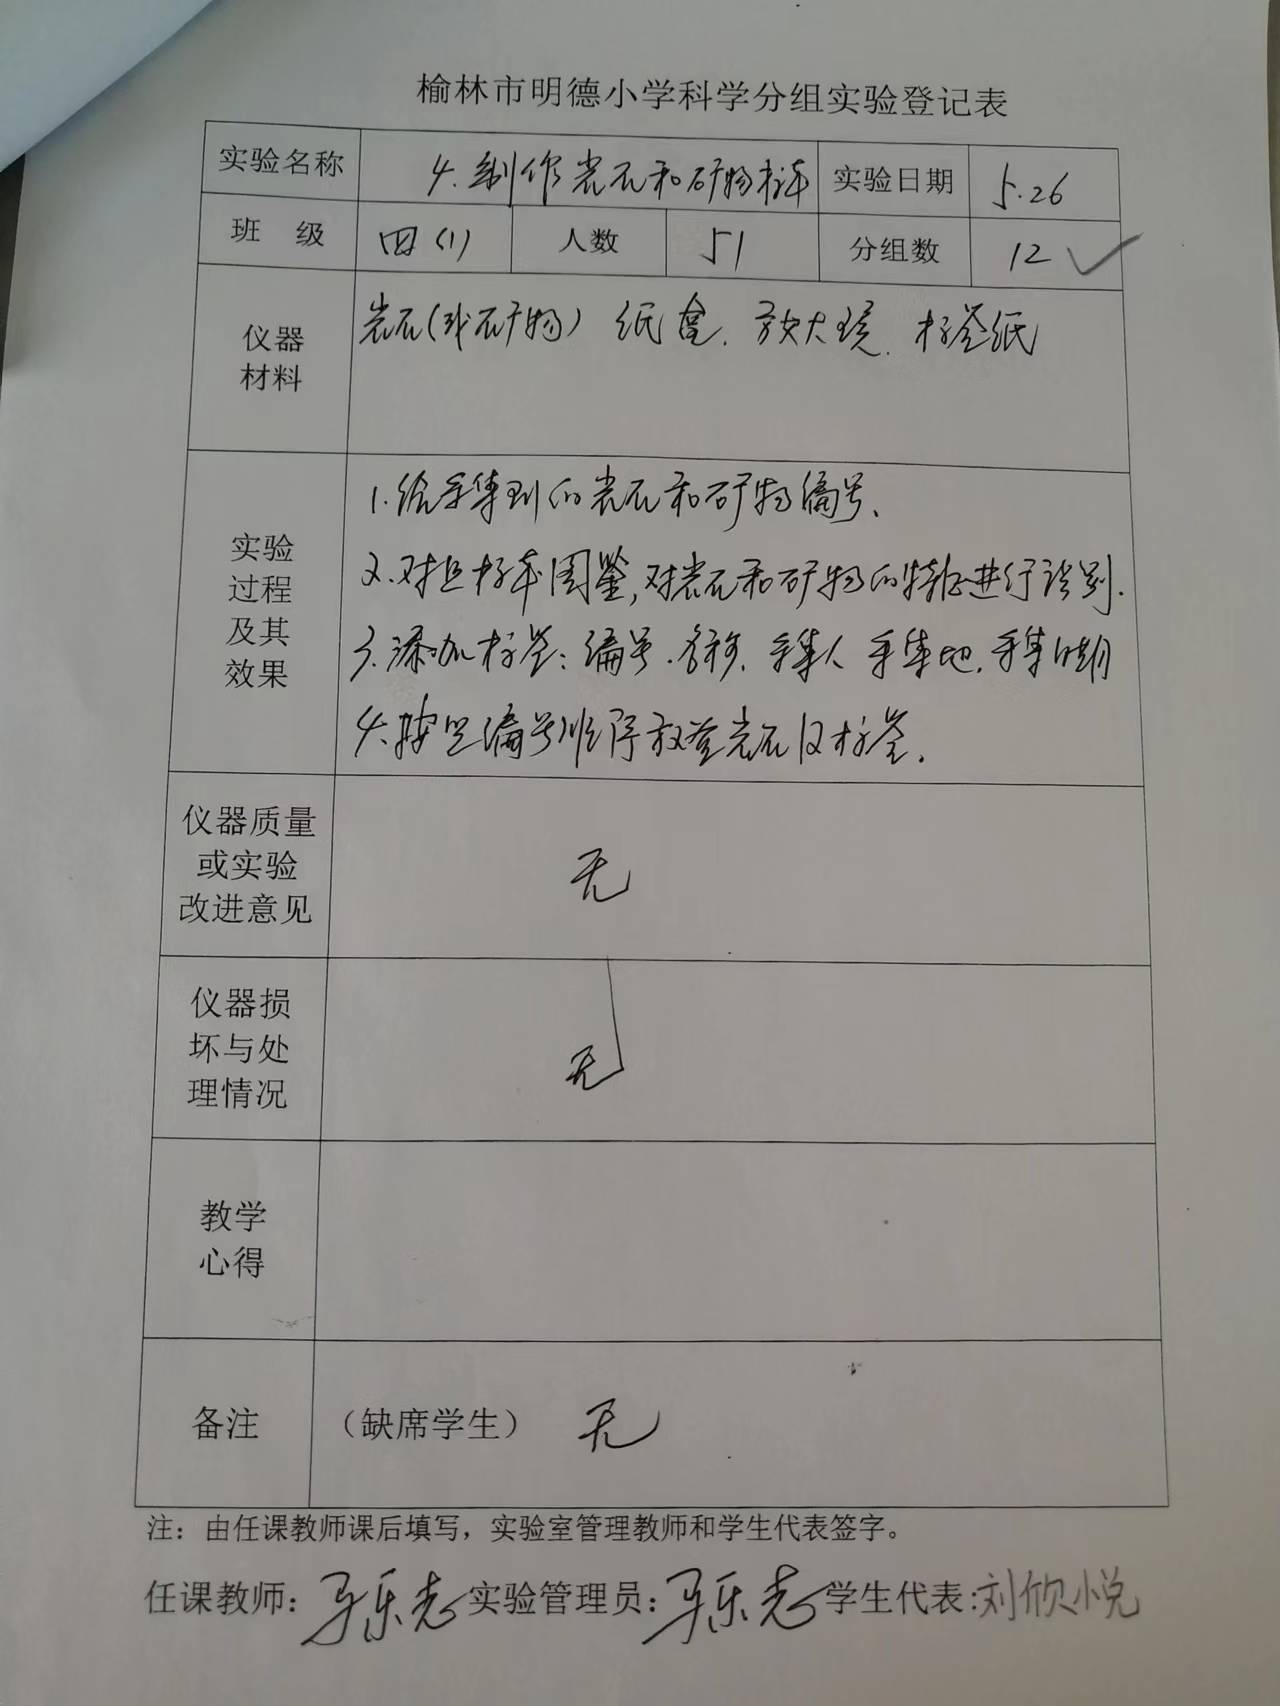 榆林市明德小学科学分组实验登记表
实验名称 4.制作岩石和矿物标本 实验日期 5.26
班 级 四(1) 人数 51 分组数 12
仪器 岩石(或矿物) 纸盒.放大镜.标签纸
材料
1.给采集到的岩石和矿物编号、
实验 2.对照标本图鉴,对岩石和矿物的特征进行识别.
过程
及其 3.添加标签:编号.名称.采集人 采集地.采集日期
效果 4.按照编号顺序放签岩石及标签.
仪器质量
或实验 无
改进意见
仪器损
坏与处 无
理情况
教学
心得
备注 (缺席学生) 无
注:由任课教师课后填写,实验室管理教师和学生代表签字。
任课教师:马乐志 实验管理员:马乐志 学生代表:刘欣悦